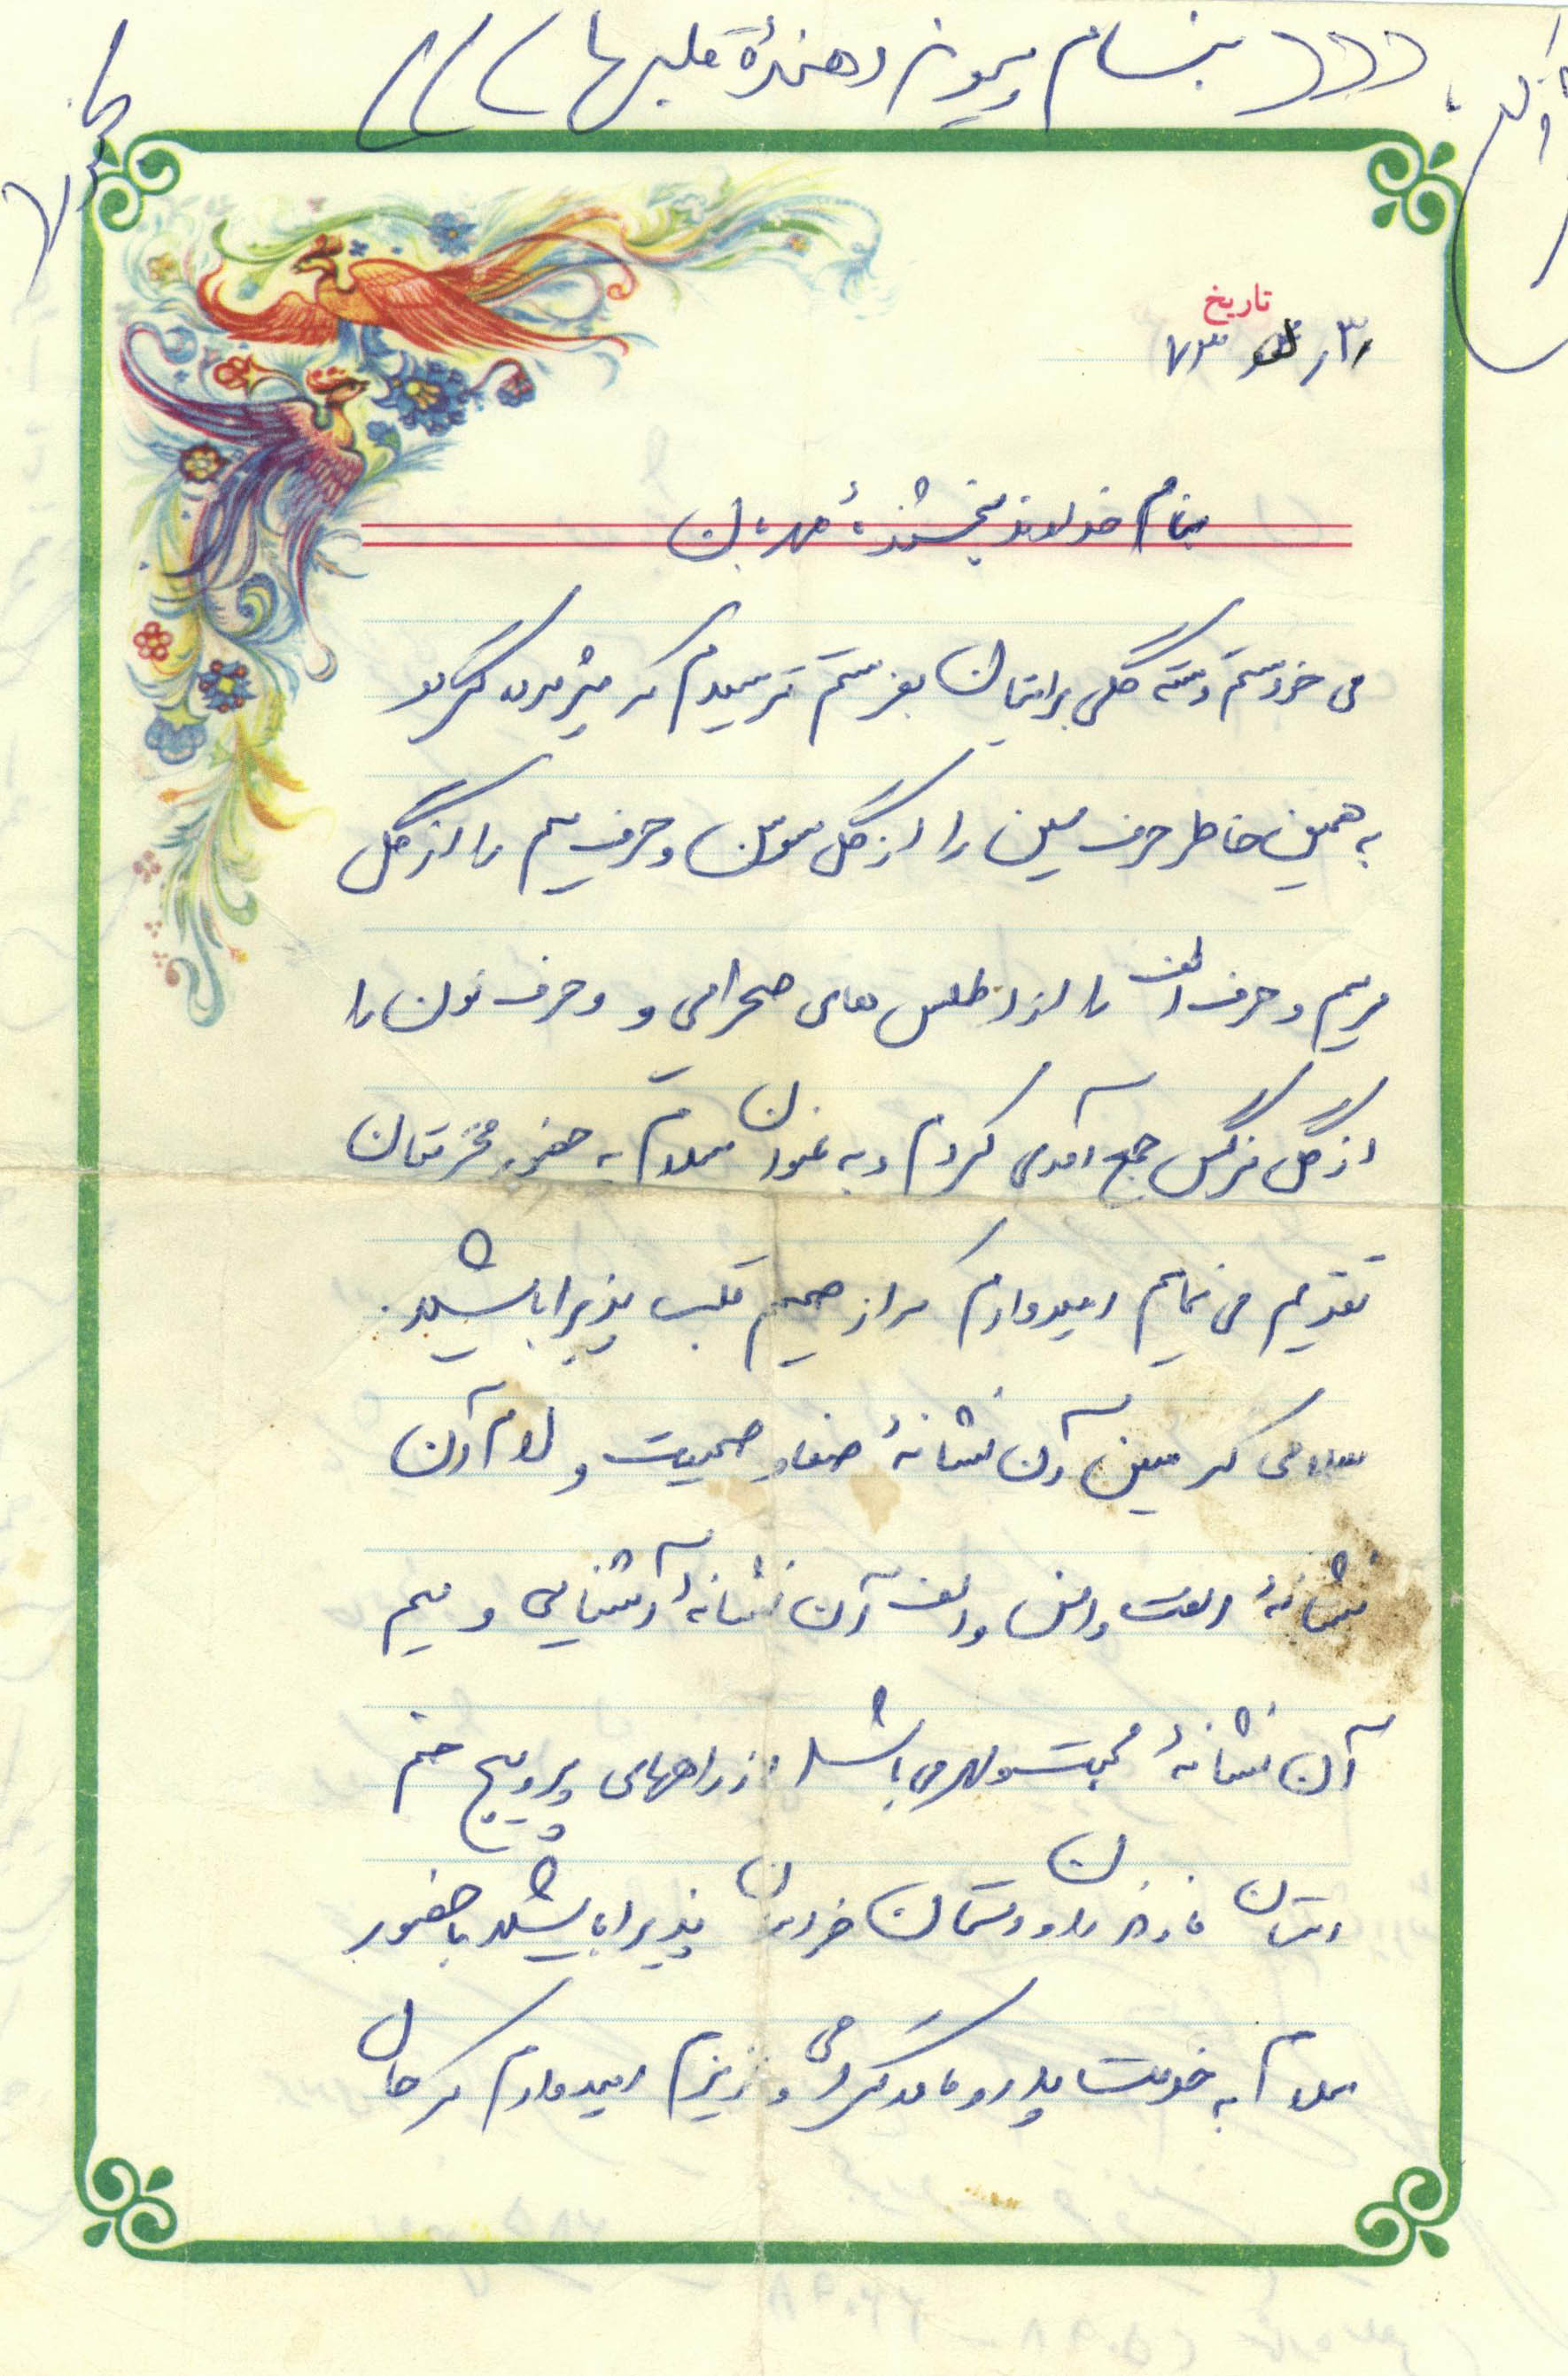 (((بنام پیوند دهندهٔ قلبها)))
تاریخ
بنام خداوند بخشندهٔ مهربان
می خواستم دسته گلی برایتان بفرستم ترسیدم که پژمرده گردد
به همین خاطر حرف سین را از گل سوسن و حرف میم را از گل
مریم و حرف الف را از اطلس های صحرایی و و حرف نون را
از گل نرگس جمع آوری کردم و به عنوان سلام به حضور محترمتان
تقدیم می نمایم امیدوارم که از صمیم قلب پذیرا باشید.
سلامی که سین آن نشانهٔ صفا و صمیمیت و لام آن
نشانهٔ الفت وانس و الف آن نشانهٔ آشنایی و میم
آن نشانهٔ محبت و مهر می باشد از راههای پر و پیچ خم
استان مازندران و دستان خواهران پذیرا باشید با حضور
سلام به خدمت پدر و مادر گرامی و عزیزم امیدوارم که حال